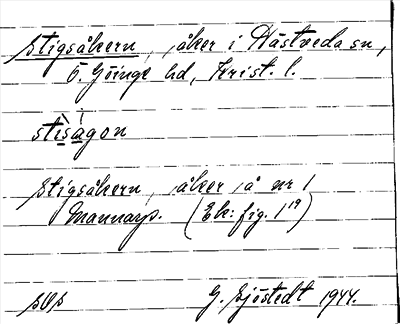 Stigsåkern, åker i Hästveda sn,
Ö. Göinge hd, Krist. l.
stisågon
Stigsåkern, åker å nr 1
Mannarp. (Ek: fig. 1¹⁹)
G. Sjöstedt 1944.